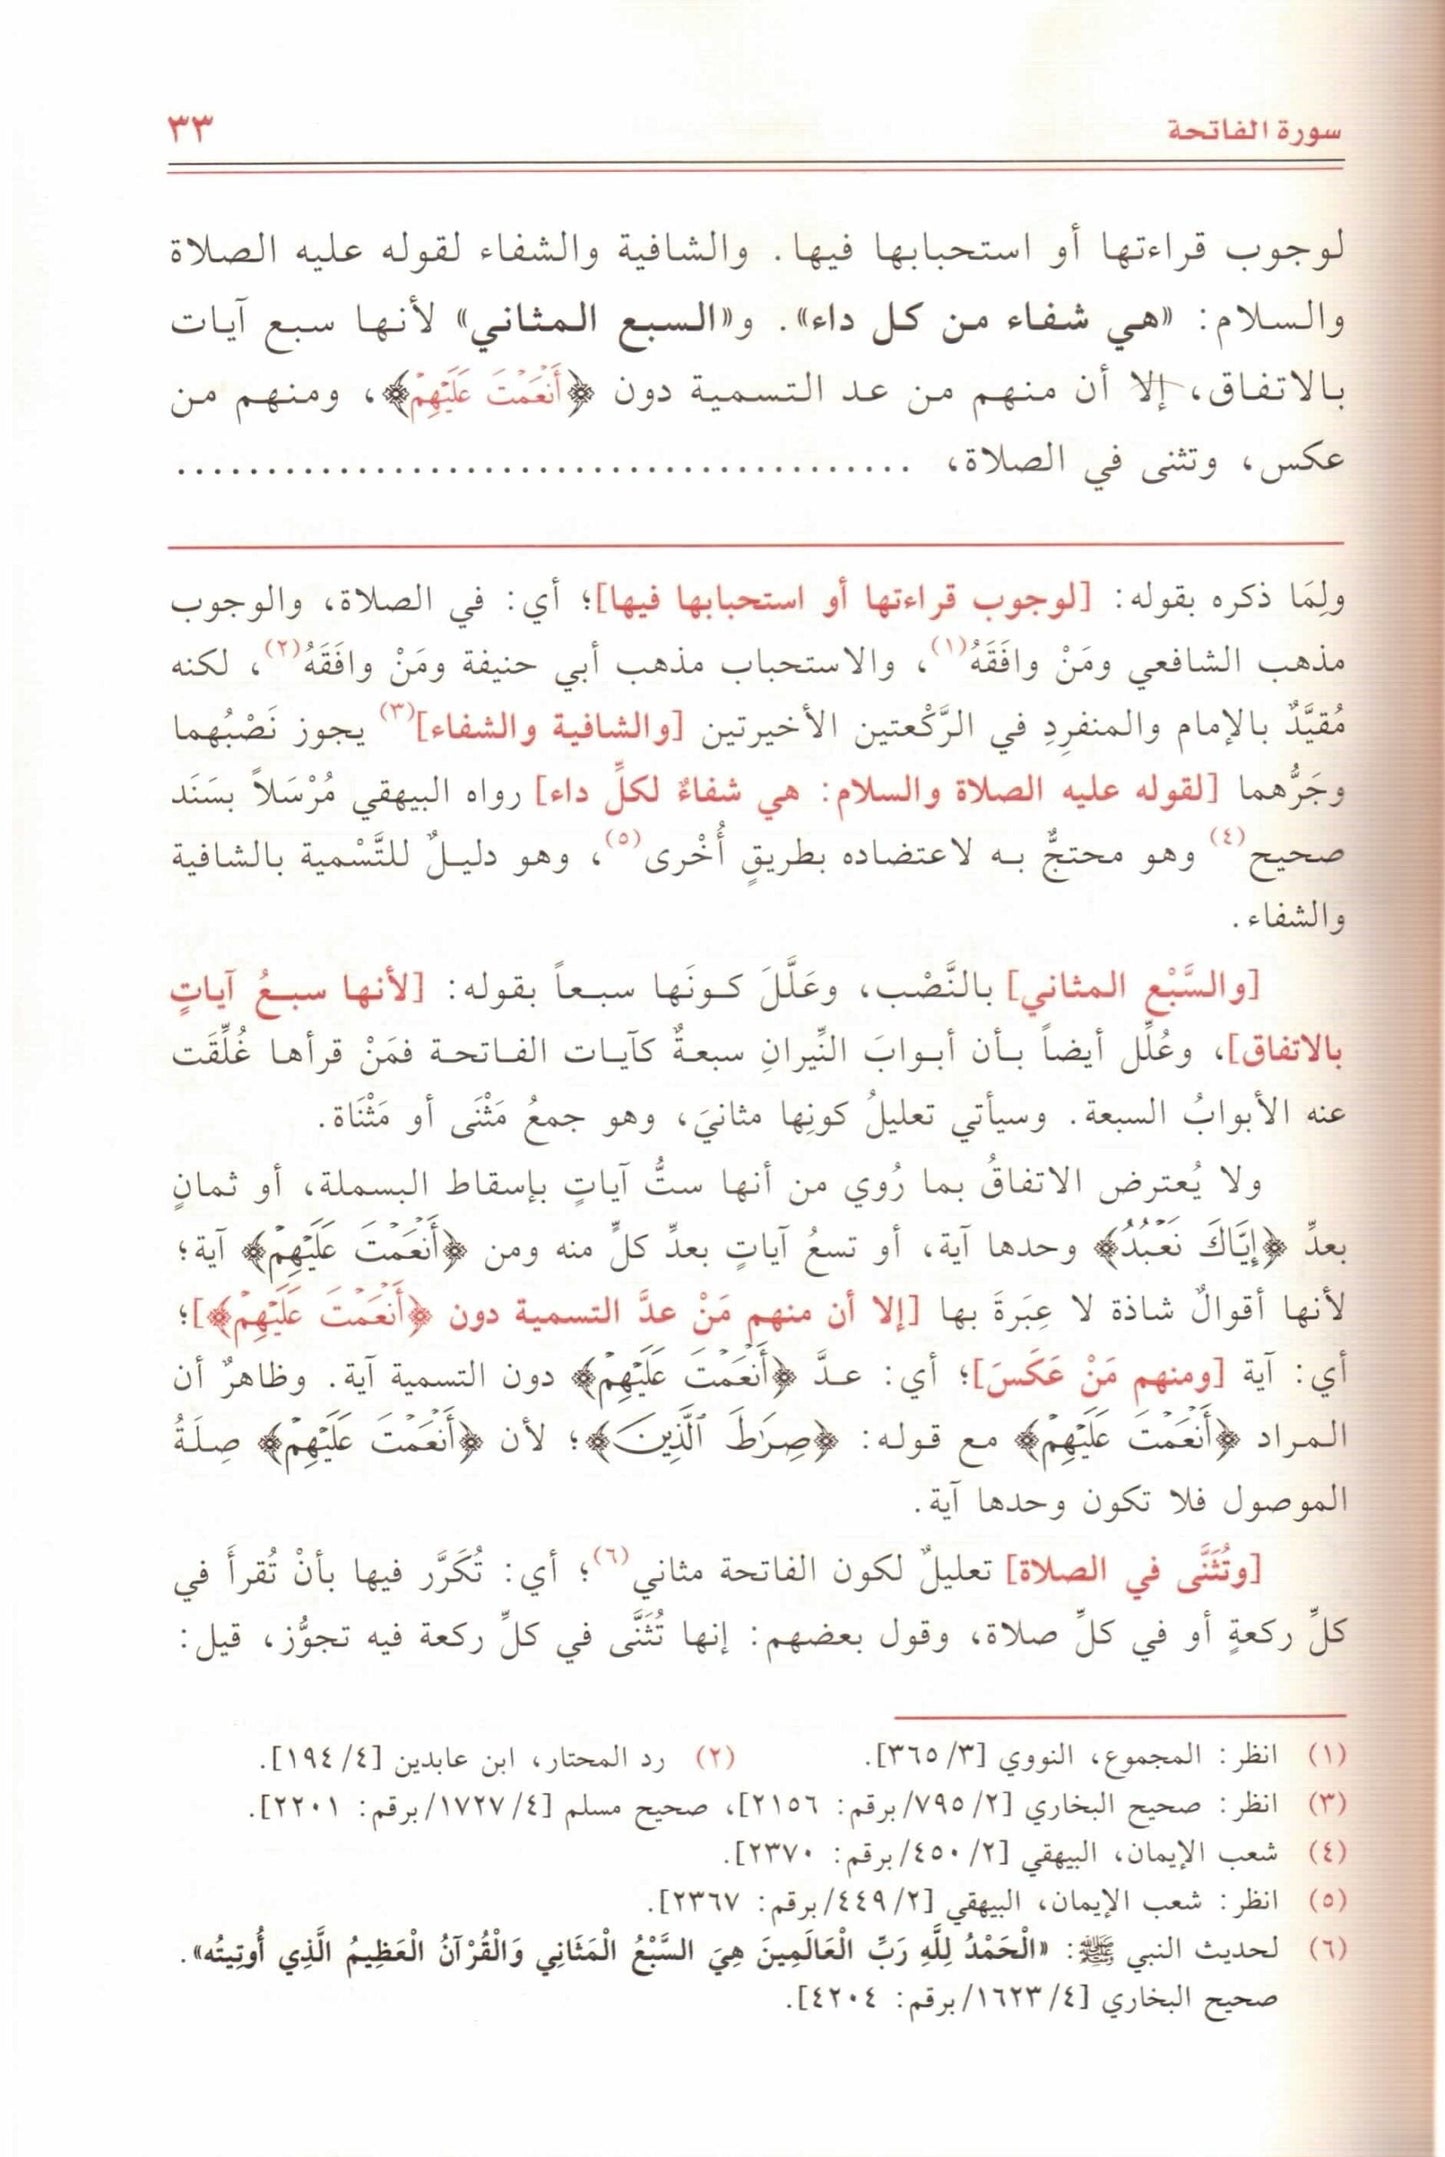 سورة الفاتحة
٣٣
لوجوب قراءتها أو استحبابها فيها. والشافية والشفاء لقوله عليه الصلاة
والسلام: «هي شفاء من كل داء». و«السبع المثاني» لأنها سبع آيات
بالاتفاق، إلا أن منهم من عد التسمية دون ﴿أَنْعَمْتَ عَلَيْهِمْ﴾، ومنهم من
عكس، وتثنى في الصلاة، .........................................
ولِمَا ذكره بقوله: [لوجوب قراءتها أو استحبابها فيها]؛ أي: في الصلاة، والوجوب
مذهب الشافعي ومَنْ وافَقَهُ(١)، والاستحباب مذهب أبي حنيفة ومَنْ وافَقَهُ(٢)، لكنه
مُقيَّدٌ بالإمام والمنفرِدِ في الرَّكْعتين الأخيرتين [والشافية والشفاء](٣) يجوز نَصْبُهما
وجَرُّهما [لقوله عليه الصلاة والسلام: هي شفاءٌ لكلِّ داء] رواه البيهقي مُرْسَلاً بسَنَد
صحيح(٤) وهو محتجٌّ به لاعتضاده بطريقٍ أُخْرى(٥)، وهو دليلٌ للتَّسْمية بالشافية
والشفاء.
[والسَّبْع المثاني] بالنَّصْب، وعَلَّلَ كونَها سبعاً بقوله: [لأنها سبعُ آياتٍ
بالاتفاق]، وعُلِّل أيضاً بأن أبوابَ النِّيرانِ سبعةٌ كآيات الفاتحة فمَنْ قرأها غُلِّقَت
عنه الأبوابُ السبعة. وسيأتي تعليلُ كونِها مثانيَ، وهو جمعُ مَثْنَى أو مَثْنَاة.
ولا يُعترض الاتفاقُ بما رُوي من أنها ستُّ آياتٍ بإسقاط البسملة، أو ثمانٍ
بعدِّ ﴿إِيَّاكَ نَعْبُدُ﴾ وحدها آية، أو تسعُ آياتٍ بعدِّ كلٍّ منه ومن ﴿أَنْعَمْتَ عَلَيْهِمْ﴾ آية؛
لأنها أقوالٌ شاذة لا عِبَرةَ بها [إلا أن منهم مَنْ عدَّ التسمية دون ﴿أَنْعَمْتَ عَلَيْهِمْ﴾]؛
أي: آية [ومنهم مَنْ عَكَسَ]؛ أي: عدَّ ﴿أَنْعَمْتَ عَلَيْهِمْ﴾ دون التسمية آية. وظاهرٌ أن
المراد ﴿أَنْعَمْتَ عَلَيْهِمْ﴾ مع قوله: ﴿صِرَٰطَ ٱلَّذِينَ﴾؛ لأن ﴿أَنْعَمْتَ عَلَيْهِمْ﴾ صِلَةُ
الموصول فلا تكون وحدها آية.
[وتُثَنَّى في الصلاة] تعليلٌ لكون الفاتحة مثاني(٦)؛ أي: تُكَرَّر فيها بأنْ تُقرأَ في
كلِّ ركعةٍ أو في كلِّ صلاة، وقول بعضهم: إنها تُثَنَّى في كلِّ ركعة فيه تجوُّز، قيل:
(١) انظر: المجموع، النووي [٣/ ٣٦٥]. (٢) رد المحتار، ابن عابدين [٤/ ١٩٤].
(٣) انظر: صحيح البخاري [٢/ ٧٩٥/ برقم: ٢١٥٦]، صحيح مسلم [٤/ ١٧٢٧/ برقم: ٢٢٠١].
(٤) شعب الإيمان، البيهقي [٢/ ٤٥٠/ برقم: ٢٣٧٠].
(٥) انظر: شعب الإيمان، البيهقي [٢/ ٤٤٩/ برقم: ٢٣٦٧].
(٦) لحديث النبي ﷺ: «الْحَمْدُ لِلَّهِ رَبِّ الْعَالَمِينَ هِيَ السَّبْعُ الْمَثَانِي وَالْقُرْآنُ الْعَظِيمُ الَّذِي أُوتِيتُه».
صحيح البخاري [٤/ ١٦٢٣/ برقم: ٤٢٠٤].